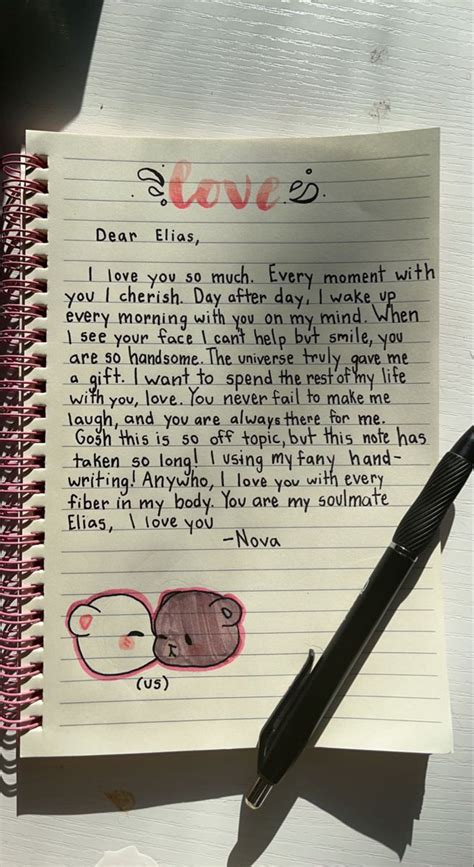 love
Dear Elias,
I love you so much. Every moment with
you I cherish. Day after day, I wake up
every morning with you on my mind. When
I see your face I can't help but smile, you
are so handsome. The universe truly gave me
a gift. I want to spend the rest of my life
with you, love. You never fail to make me
laugh, and you are always there for me.
Gosh this is so off topic, but this note has
taken so long! I using my fany hand-
writing! Anywho, I love you with every
fiber in my body. You are my soulmate
Elias, I love you
-Nova
(US)